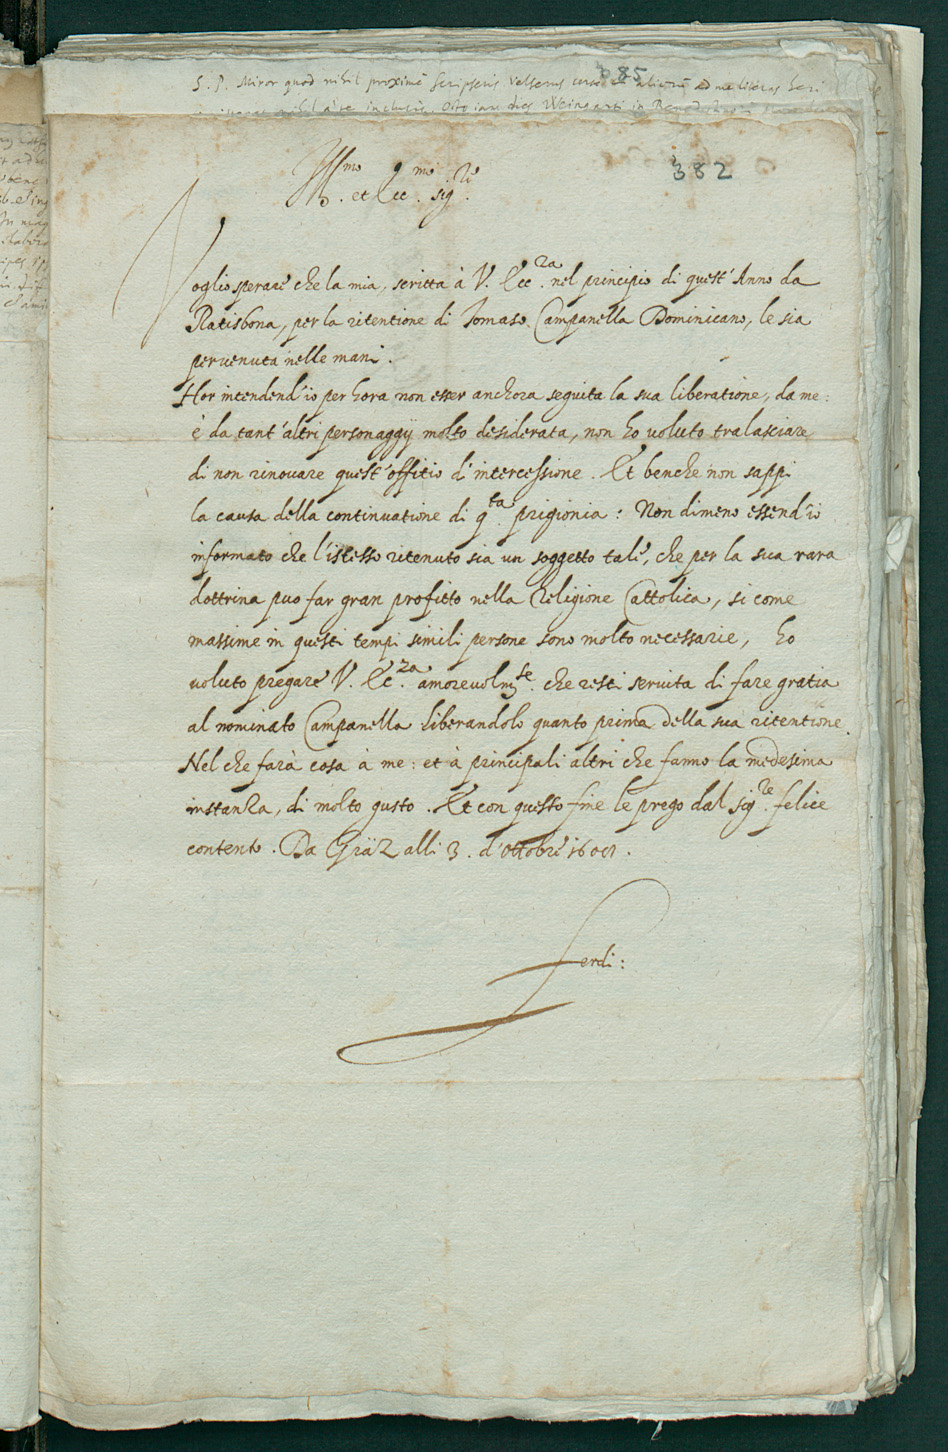 S. P. Miror quod nihil proximè scripseris Velserus
385
382
Ill.mo et Ecc.mo sig.re
Voglio sperare che la mia, scritta à V. Ecc.za nel principio di quest' Anno da
Ratisbona, per la ritentione di Tomaso Campanella Dominicano, le sia
pervenuta nelle mani.
Hor intendend' io per hora non esser anchora seguita la sua liberatione, da me:
è da tant' altri personaggij molto desiderata, non ho voluto tralasciare
di non rinovare quest' offitio d' intercessione. Et benche non sappi
la causa della continuatione di q.ta prigionia: Non dimeno essend' io
informato che l' istesso ritenuto sia un soggetto tale, che per la sua rara
dottrina puo far gran profitto nella Religione Cattolica, si come
massime in questi tempi simili persone sono molto necessarie, ho
voluto pregare V. Ec.za amorevolm.se che resti servita di fare gratia
al nominato Campanella liberandolo quanto prima della sua ritentione.
Nel che farà cosa à me: et à principali altri che fanno la medesima
instanza, di molto gusto. Et con questo fine le prego dal sig.re felice
contento. Da Gräz alli 3. d' Ottobre
Ferdi: